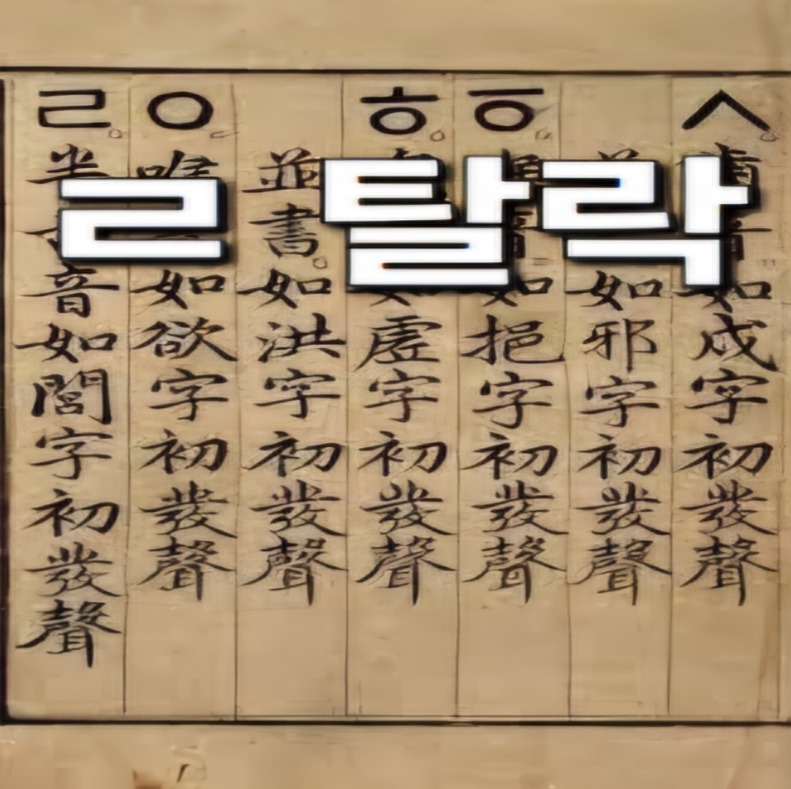 ㄹ 탈락
ㅅ。如戌字初發聲
如邪字初發聲
ㆆ。如挹字初發聲
ㅎ。如虛字初發聲
並書。如洪字初發聲
ㅇ。喉如欲字初發聲
ㄹ。半音如閭字初發聲